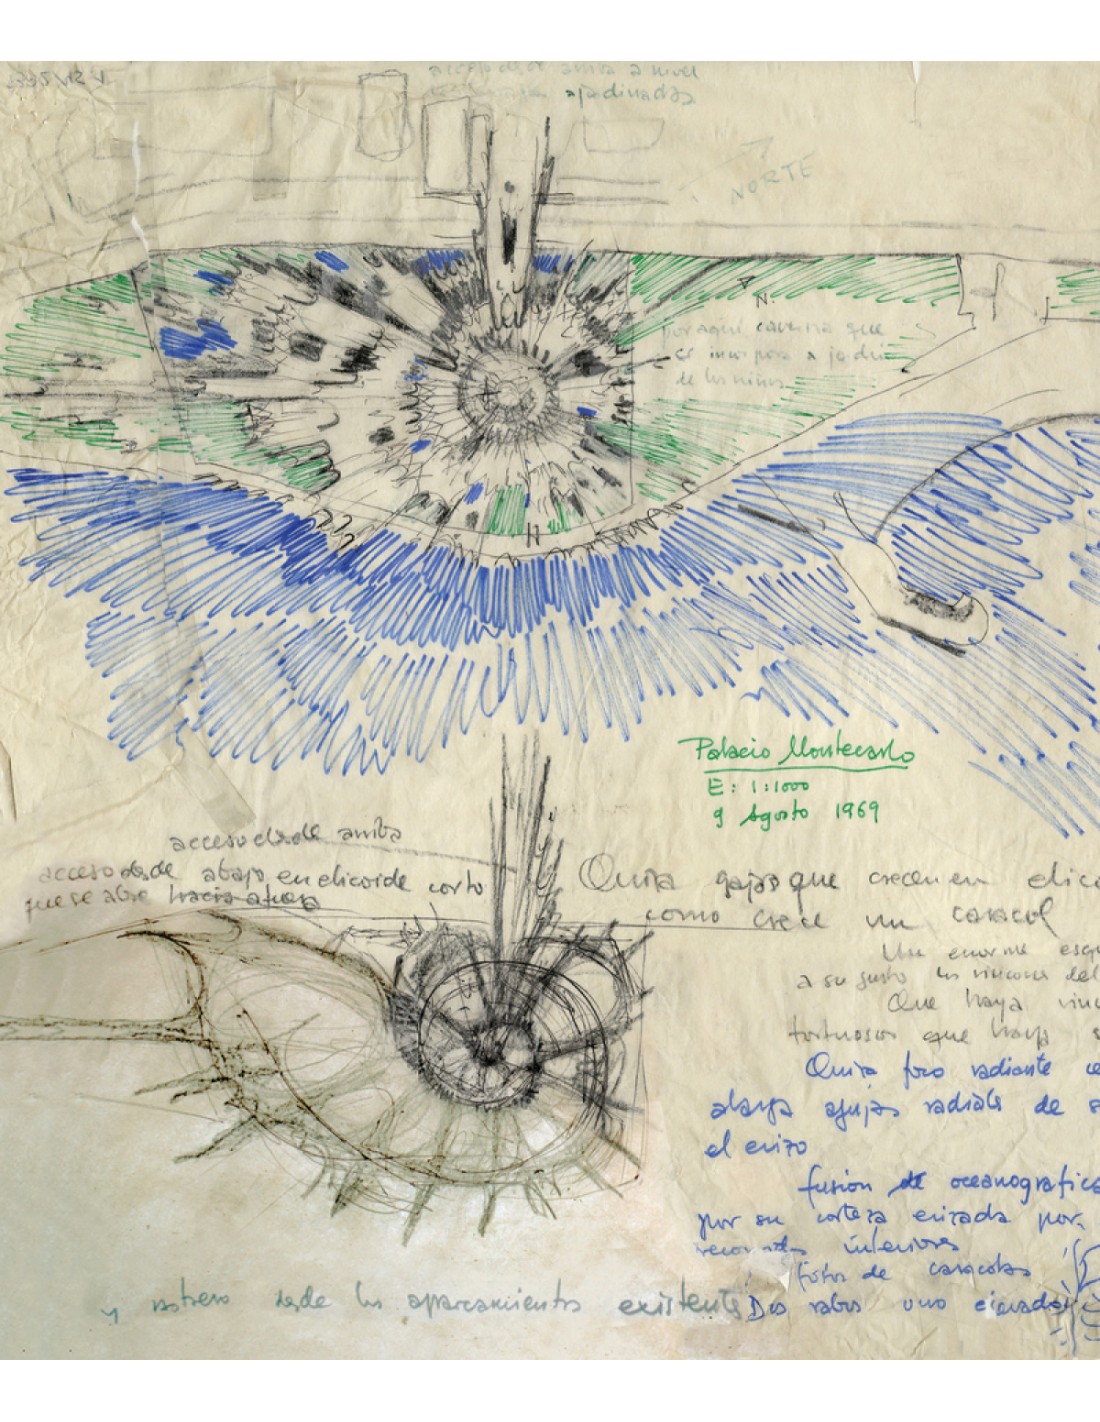 acceso desde arriba a nivel
ajardinadas
NORTE
N.
por aquí caverna que
se incorpora a jardin
de los niños
H
Palacio Montecarlo
E: 1:1000
9 Agosto 1969
acceso desde arriba
acceso desde abajo en elicoide corto
que se abre hacia afuera
Quizá gajos que crecen en elico
como crece un caracol
Un enorme esqu
a su gusto los rincones del
Que haya rinc
tortuosos que haya s
Quizá foco radiante ce
alarga agujas radiales de s
el erizo
fusión de oceanografica
por su corteza erizada por
interiores
fotos de caracolas
y rastrero desde los aparcamientos existentes
Dos rabos uno